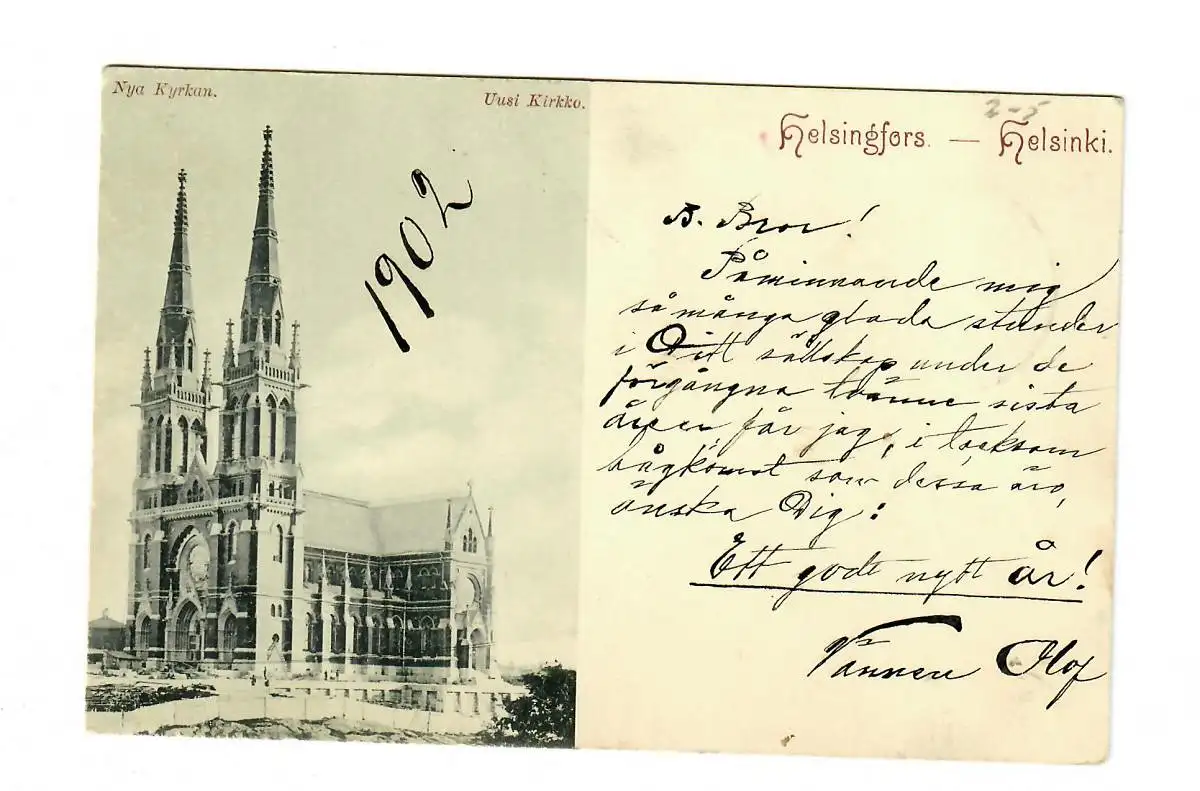 Nya Kyrkan.
Uusi Kirkko.
1902
2-5
Helsingfors. — Helsinki.
B. Bror!
Påminnande mig
så många glada stunder
i Ditt sällskap under de
förgångna tvänne sista
åren, får jag, i tacksam
hågkomst som dessa äro,
önska Dig:
Ett godt nytt år!
Vännen Olof